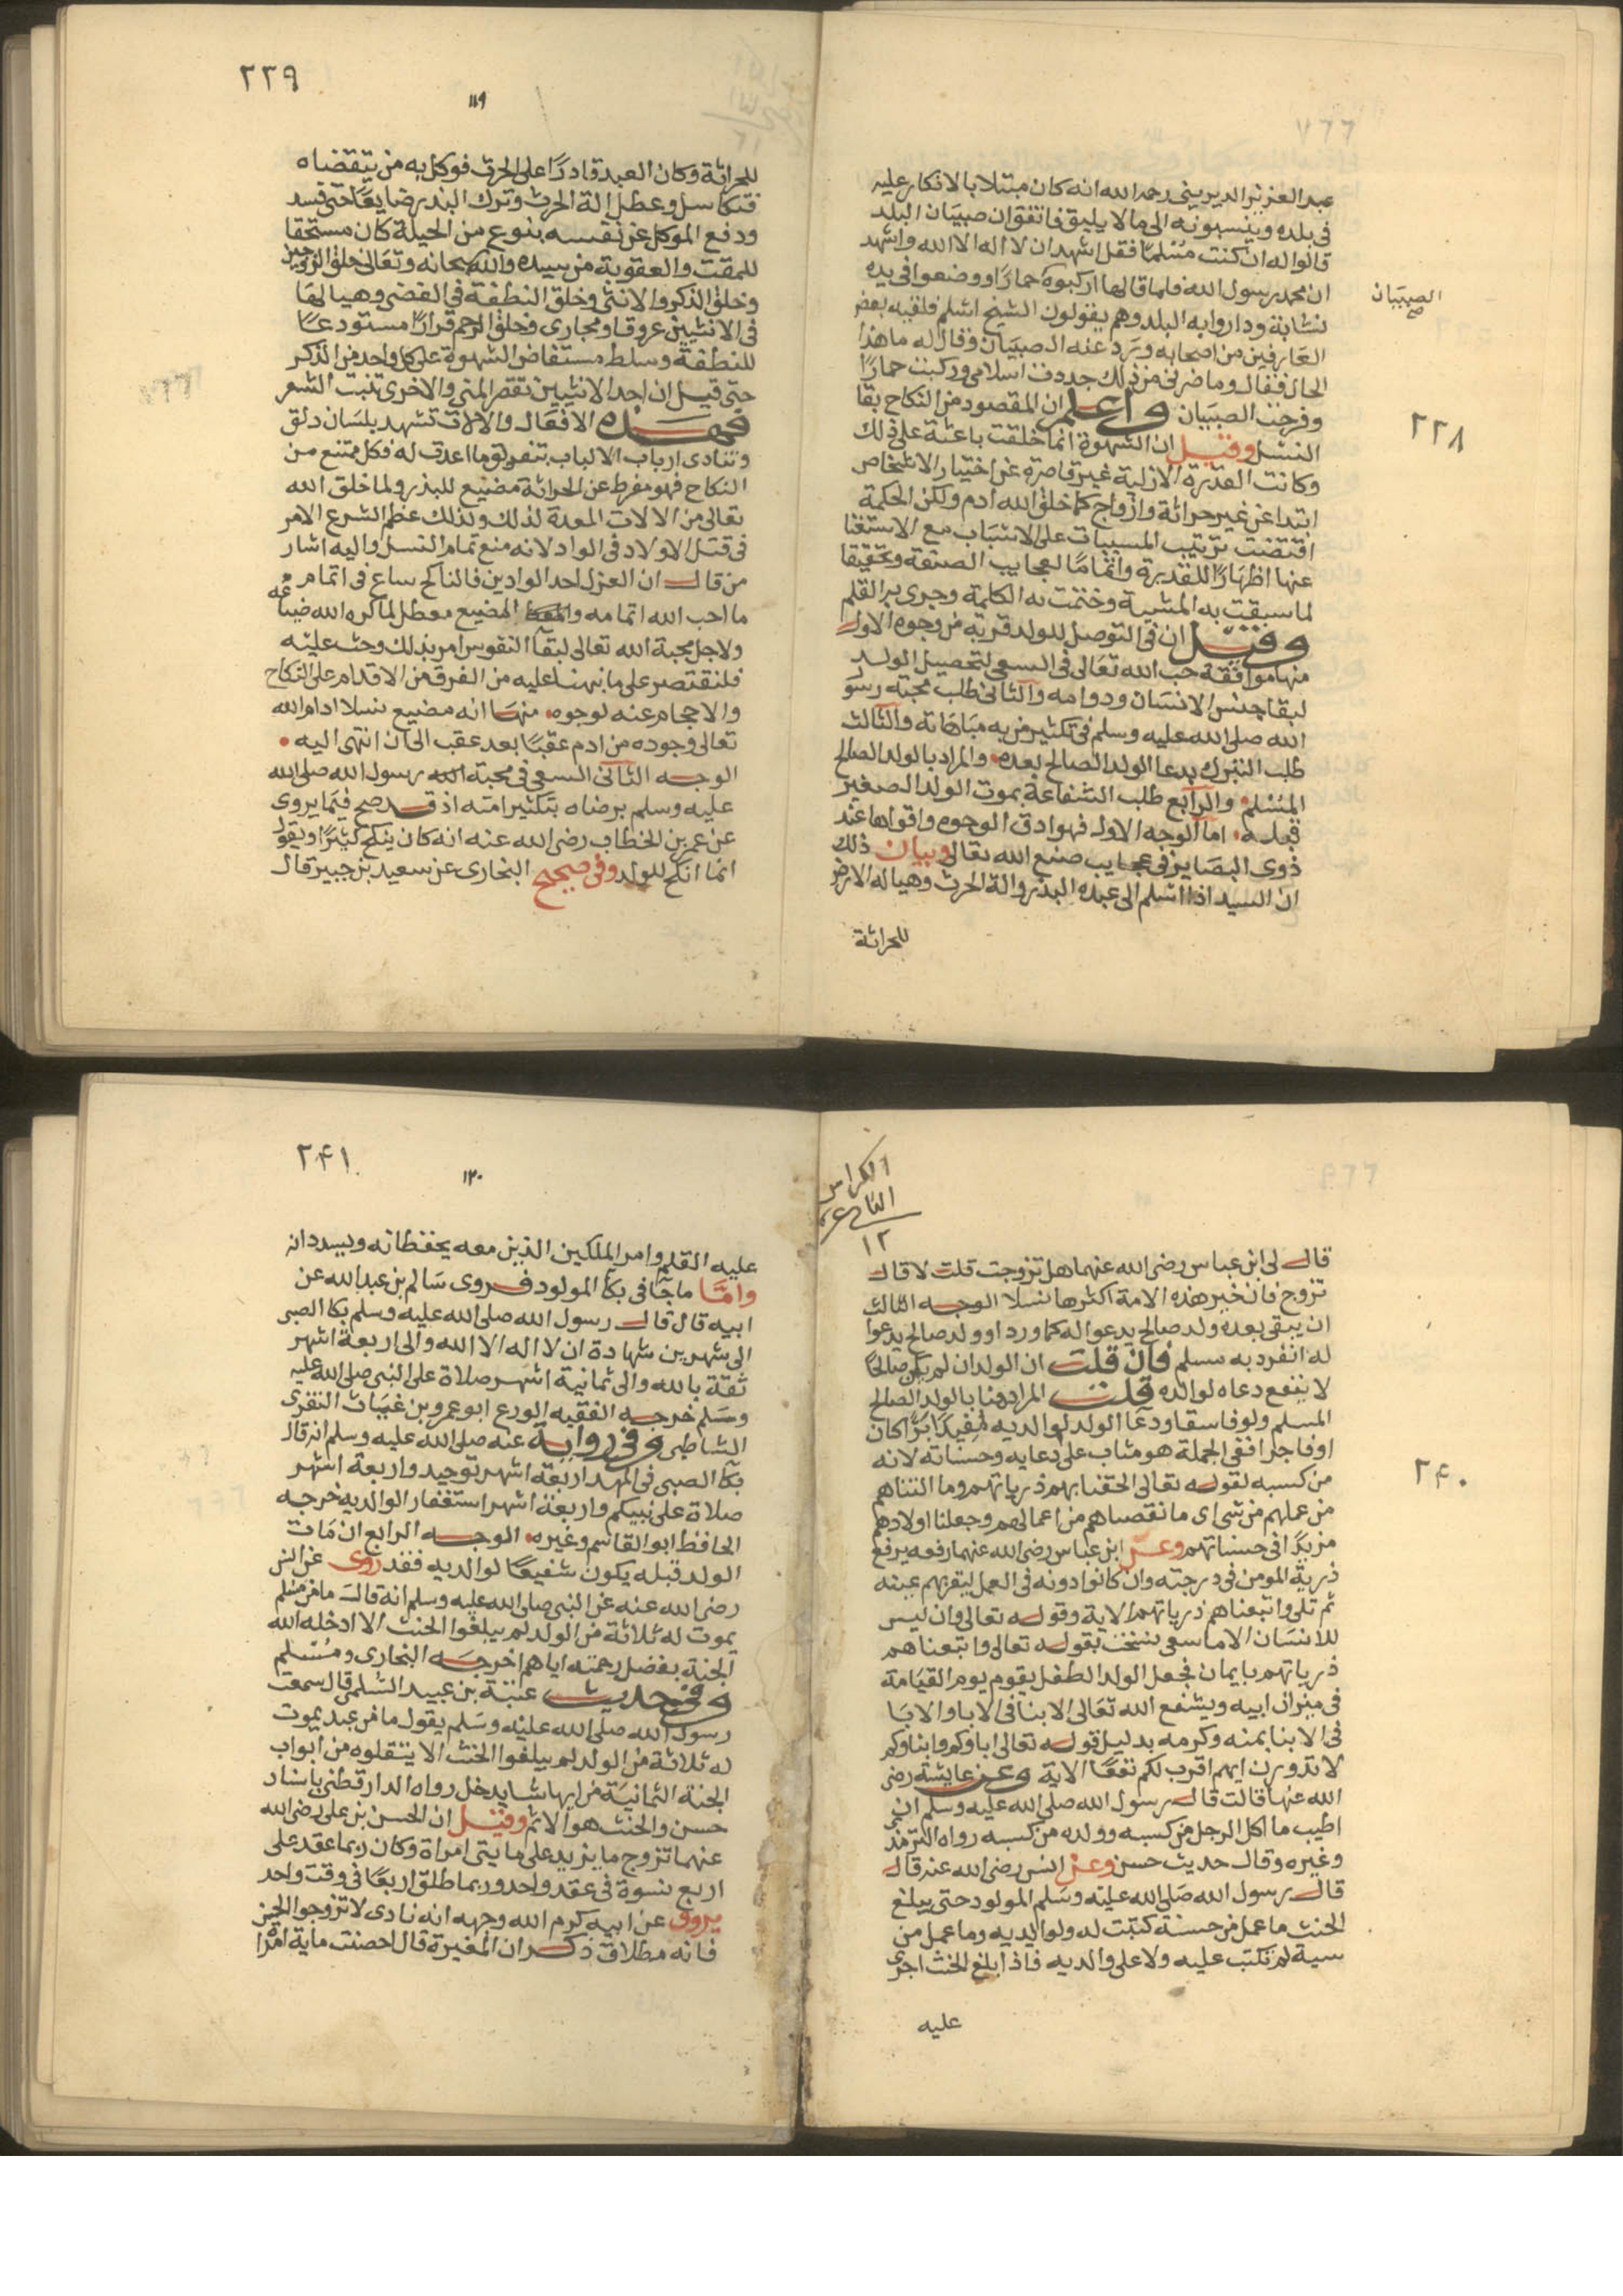 عبد العزيز الديريني رحمه الله انه كان مبتلا بالانكار عليه
في بلده وينسبونه الى ما لا يليق فاتفق ان صبيان البلد
قالوا له ان كنت مسلما فقل اشهد ان لا اله الا الله واشهد
ان محمد رسول الله فلما قالها اركبوه حمارا ووضعوا في يده
نشابة وداروا به البلد وهم يقولون الشيخ اسلم فلقيه بعض
العارفين من اصحابه ورد عنه الصبيان وقال له ما هذا
الحال فقال وما ضرني من ذلك جددت اسلامي وركبت حمارا
وفرحت الصبيان واعلم ان المقصود من النكاح بقا
النسل وقيل ان الشهوة انما خلقت باعثة على ذلك
وكانت القدرة الازلية غير قاصرة عن اختيار الاشخاص
ابتدا عن غير حراثة وازواج كما خلق الله ادم ولكن الحكمة
اقتضت ترتيب المسببات على الاسباب مع الاستغنا
عنها اظهارا للقدرة واتماما لعجايب الصنعة وتحقيقا
لما سبقت به المشيية وختمت به الكلمة وجرى به القلم
وقيل ان في التوصل للولد قربة من وجوه الاول
منها موافقة حب الله تعالى في السعي لتحصيل الولد
لبقا جنس الانسان ودوامه والثاني طلب محبة رسو
الله صلى الله عليه وسلم في تكثير من به مباهاته والثالث
طلب التبرك بدعا الولد الصالح بعده والمراد بالولد الصالح
المسلم والرابع طلب الشفاعة بموت الولد الصغير
قبله اما الوجه الاول فهو ادق الوجوه واقواها عند
ذوي البصاير في عجايب صنع الله تعالى وبيان ذلك
ان السيد اذا اسلم الى عبده البذر والة الحرث وهيا له الارض
للحراثة
الصبيان
صح
٢٣٨
٢٣٩
١١٩
للحراثة وكان العبد قادرا على الحرث فوكل به من يتقضاه
فتكاسل وعطل الة الحرث وترك البذر ضايعا حتى فسد
ودفع الموكل عن نفسه بنوع من الحيلة كان مستحقا
للمقت والعقوبة من سيده والله سبحانه وتعالى خلق الزوجين
وخلق الذكر والانثى وخلق النطفة في الفضى وهيا لها
في الانثيين عروقا ومجاري وخلق الرحم قرارا مستودعا
للنطفة وسلط مستقاض الشهوة على كل واحد من الذكر
حتى قيل ان احد الانثيين تقصر المني والاخرى تنبت الشعر
فهذه الافعال والالات تشهد بلسان دلق
وتنادى ارباب الالباب بتعريق ما اعدت له فكل ممتنع من
النكاح فهو مفرط عن الحراثة مضيع للبذر ولما خلق الله
تعالى من الالات المعدة لذلك ولذلك عظم الشرع الامر
في قتل الاولاد في الواد لانه منع تمام النسل واليه اشار
من قال ان العزل احد الوادين فالناكح ساع في اتمام
ما احب الله اتمامه والمضيع معطل لما كره الله ضياعه
ولاجل محبة الله تعالى لبقا النفوس امر بذلك وحث عليه
فلنقتصر على ما نبهنا عليه من الفرق من الاقدام على النكاح
والاحجام عنه لوجوه منها انه مضيع نسلا ادام الله
تعالى وجوده من ادم عقبا بعد عقب الى ان انتهى اليه
الوجه الثاني السعي في محبة رسول الله صلى الله
عليه وسلم برضاه بتكثير امته اذ قد صح فيما يروى
عن عمر بن الخطاب رضي الله عنه انه كان ينكح كثيرا ويقول
انما انكح للولد وفي صحيح البخاري عن سعيد بن جبير قال
الكراس
الثاني عشر
١٢
قال لي ابن عباس رضي الله عنهما هل تزوجت قلت لا قال
تزوج فان خير هذه الامة اكثرها نسلا الوجه الثالث
ان يبقى بعده ولد صالح يدعوا له كما ورد او ولد صالح يدعوا
له انفرد به مسلم فان قلت ان الولد ان لم يكن صالحا
لا ينفع دعاه لوالده قلت المراد هنا بالولد الصالح
المسلم ولو فاسقا ودعا الولد لوالديه مفيد ابرا كان
او فاجرا ففي الجملة هو مثاب على دعايه وحسناته لانه
من كسبه لقوله تعالى الحقنا بهم ذرياتهم وما التناهم
من عملهم من شي اي ما نقصناهم من اعمالهم وجعلنا اولادهم
مزيدا في حسناتهم وعن ابن عباس رضي الله عنهما رفعه يرفع
ذرية المومن في درجته وان كانوا دونه في العمل ليقر بهم عينه
ثم تلى واتبعناهم ذرياتهم الاية وقوله تعالى وان ليس
للانسان الا ما سعى نسخت بقوله تعالى واتبعناهم
ذرياتهم بايمان فجعل الولد الطفل يقوم يوم القيامة
في ميزان ابيه ويشفع الله تعالى الابنا في الابا والابا
في الابنا بمنه وكرمه بدليل قوله تعالى اباوكم وابناوكم
لا تدرون ايهم اقرب لكم نفعا الاية وعن عايشة رضي
الله عنها قالت قال رسول الله صلى الله عليه وسلم ان
اطيب ما اكل الرجل من كسبه وولده من كسبه رواه الترمذ
وغيره وقال حديث حسن وعن انس رضي الله عنه قال
قال رسول الله صلى الله عليه وسلم المولود حتى يبلغ
الحنث ما عمل من حسنة كتبت له ولوالديه وما عمل من
سية لم تكتب عليه ولا على والديه فاذا بلغ الحنث اجرى
عليه
٢٤٠
٢٤١
١٢٠
عليه القلم وامر الملكين الذين معه يحفظانه ويسددانه
واما ما جا في بكا المولود فروى سالم بن عبد الله عن
ابيه قال قال رسول الله صلى الله عليه وسلم بكا الصبي
الى شهرين شهادة ان لا اله الا الله والى اربعة اشهر
ثقة بالله والى ثمانية اشهر صلاة على النبي صلى الله عليه
وسلم خرجه الفقيه الورع ابو عمرو بن غياث النفزي
الشاطبي وفي رواية عنه صلى الله عليه وسلم انه قال
بكا الصبي في المهد اربعة اشهر توحيد واربعة اشهر
صلاة على نبيكم واربعة اشهر استغفار لوالديه خرجه
الحافظ ابو القاسم وغيره الوجه الرابع ان مات
الولد قبله يكون شفيعا لوالديه فقد روى عن انس
رضي الله عنه عن النبي صلى الله عليه وسلم انه قال ما من مسلم
يموت له ثلاثة من الولد لم يبلغوا الحنث الا ادخله الله
الجنة بفضل رحمته اياهم اخرجه البخاري ومسلم
وفي حديث عتبة بن عبيد السلمي قال سمعت
رسول الله صلى الله عليه وسلم يقول ما من عبد يموت
له ثلاثة من الولد لم يبلغوا الحنث الا يتلقوه من ابواب
الجنة الثمانية من ايها شا يدخل رواه الدارقطني باسناد
حسن والحنث هو الاثم وقيل ان الحسن بن علي رضي الله
عنهما تزوج ما يزيد على مايتي امراة وكان ربما عقد على
اربع نسوة في عقد واحد وربما طلق اربعا في وقت واحد
يروى عن ابيه كرم الله وجهه انه نادى لا تزوجوا الحسن
فانه مطلاق ذكر ان المغيرة قال احصنت ماية امراة